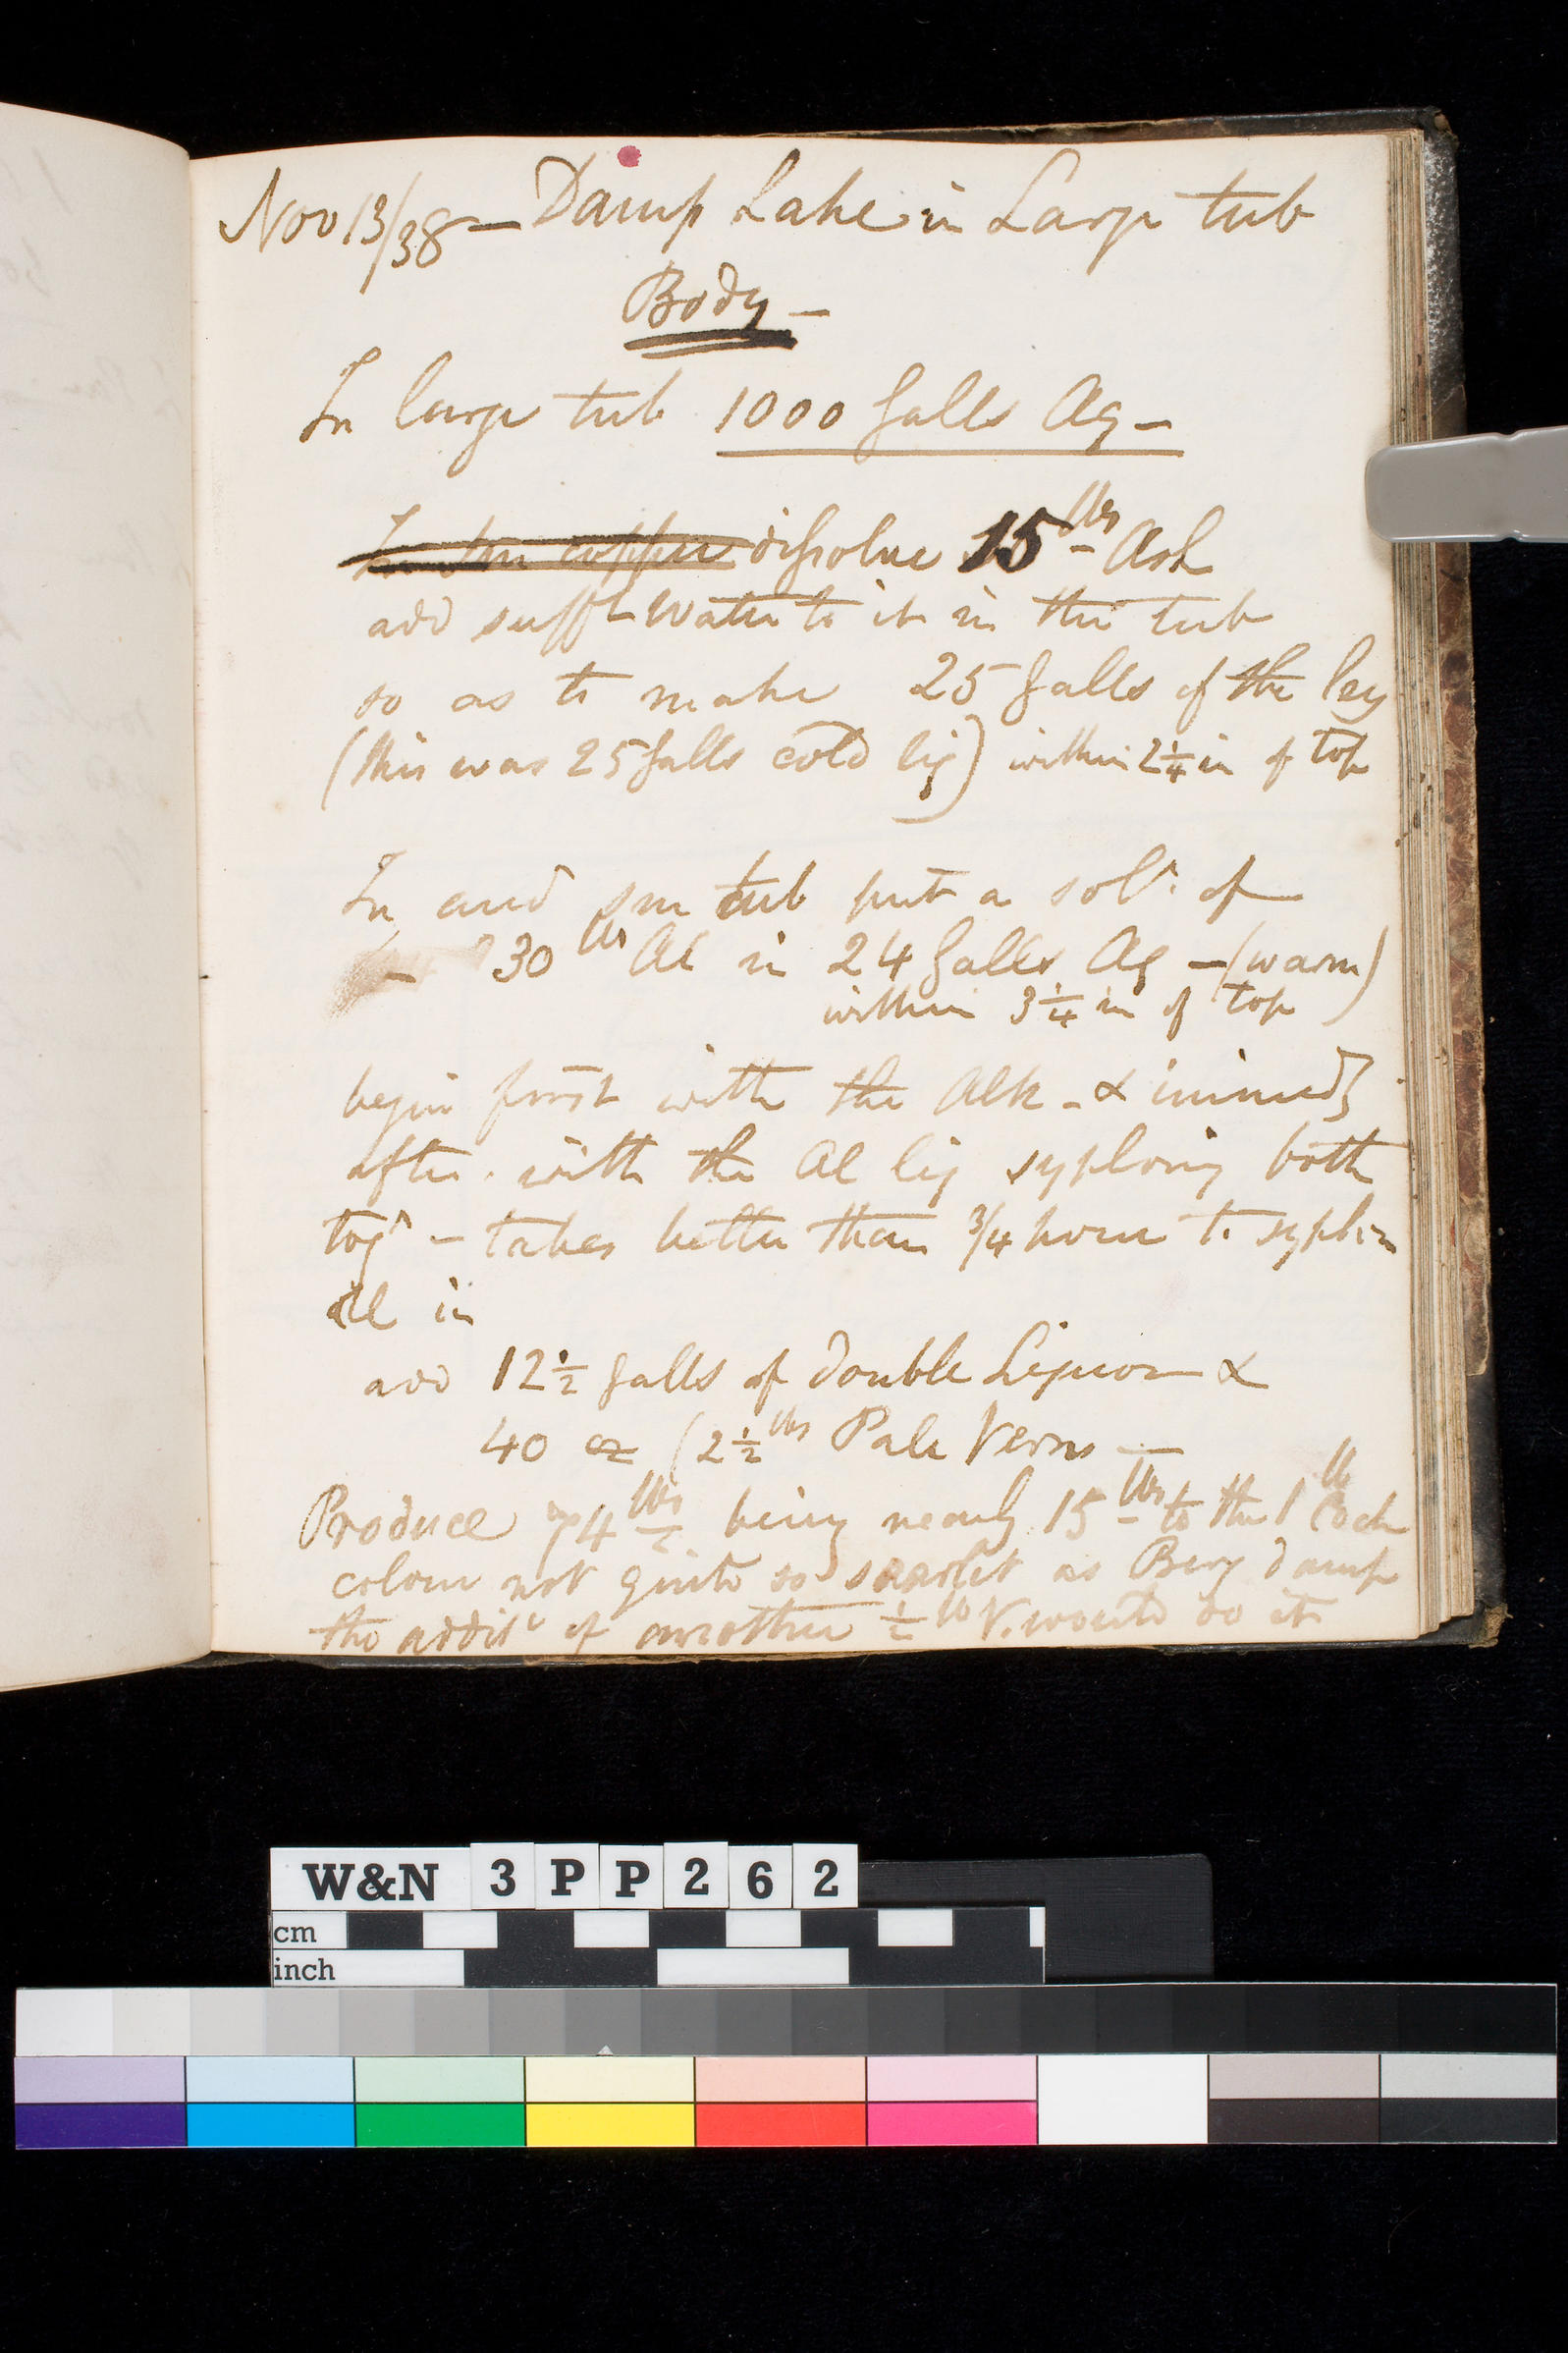 Nov 13/38 — Damp Lake in Large tub
Body —
In large tub 1000 Galls Aq —
In sm copper dissolve 15 lbs Ash
add sufft Water to it in the tub
so as to make 25 Galls of the ley
(this was 25 Galls cold liq) within 2 1/4 in of top
In and sm tub put a soln of
30 lbs Al in 24 Galls Aq — (warm)
within 3 1/4 in of top
begin first with the Alk - & immedy
after with the Al liq syphoning both
togr — takes better than 3/4 hour to syphon
all in
add 12 1/2 galls of double Liquor &
40 oz (2 1/2 lbs Pale Verms —
Produce 74 lbs being nearly 15 lbs to the 1 lb Coch
colour not quite so scarlet as Bery damp
the additn of another 1/2 lb V. would do it
W&N 3PP262
cm
inch